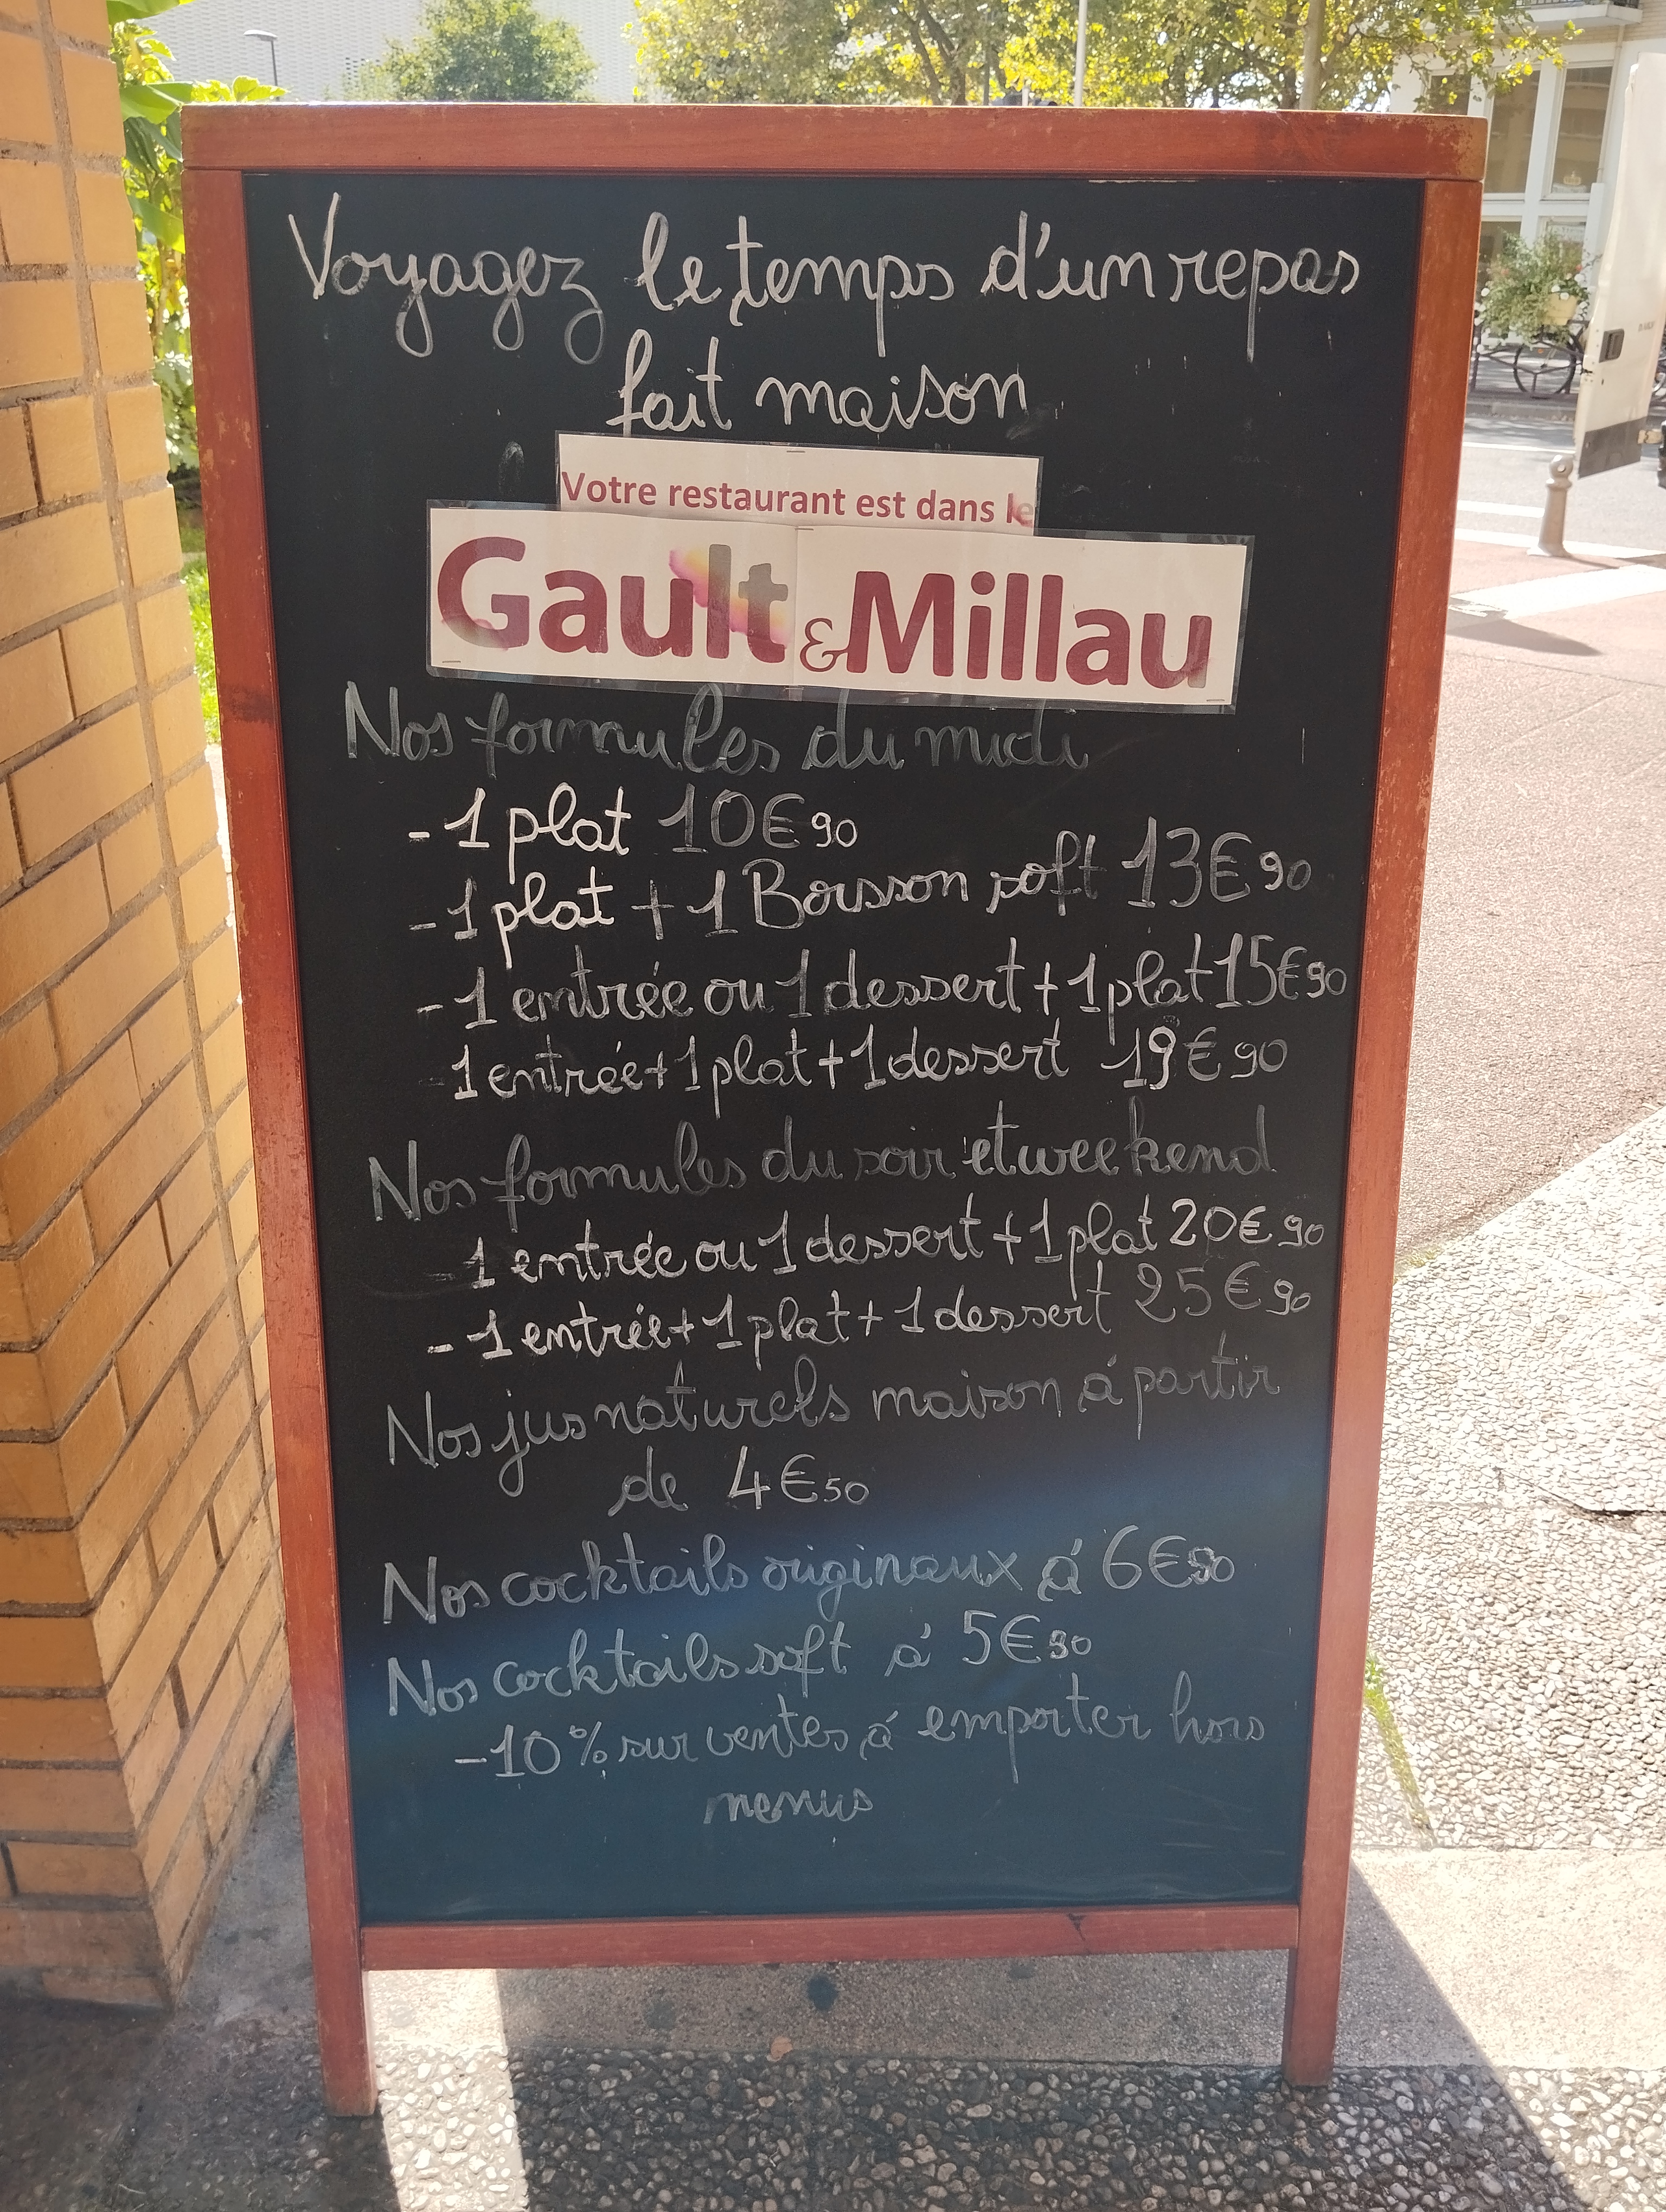 Voyagez le temps d'un repas
fait maison
Votre restaurant est dans le
Gault&Millau
Nos formules du midi
- 1 plat 10€90
- 1 plat + 1 Boisson soft 13€90
- 1 entrée ou 1 dessert + 1 plat 15€90
- 1 entrée + 1 plat + 1 dessert 19€90
Nos formules du soir et weekend
- 1 entrée ou 1 dessert + 1 plat 20€90
- 1 entrée + 1 plat + 1 dessert 25€90
Nos jus naturels maison à partir
de 4€50
Nos cocktails originaux à 6€90
Nos cocktails soft à 5€90
-10% sur ventes à emporter hors
menus